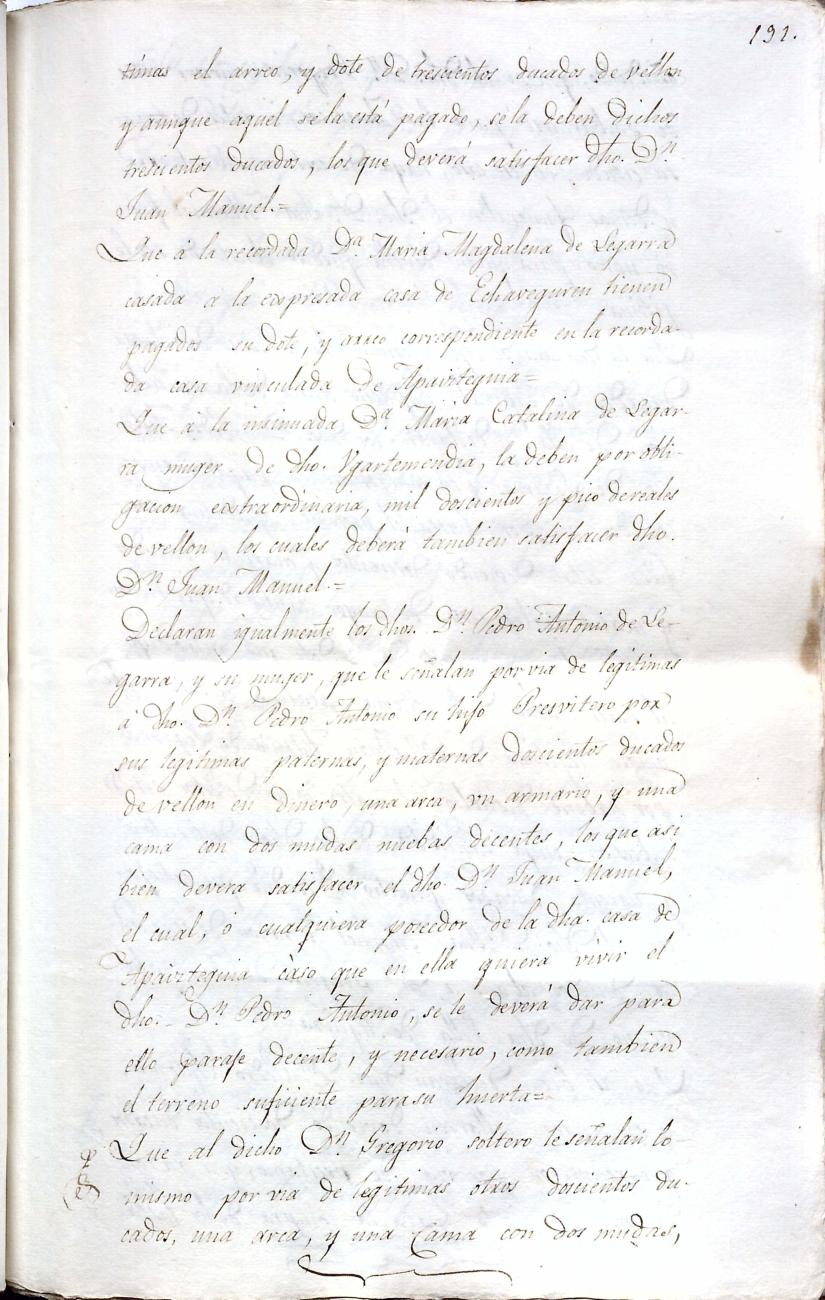 191.
timas el arreo, y dote de trescientos ducados de vellon
y aunque aquel se la está pagado, se la deben dichos
trescientos ducados, los que deverá satisfacer dho. Dn
Juan Manuel.=
Que á la recordada Da. Maria Magdalena de Legarra
casada a la expresada casa de Echaveguren tienen
pagados su dote, y arreo correspondiente en la recorda-
da casa vinculada de Apaizteguia=
Que á la insinuada Da. Maria Catalina de Legar-
ra muger de dho. Vgartemendia, la deben por obli-
gacion extraordinaria, mil doscientos y pico de reales
de vellon, los cuales deberá tambien satisfacer dho.
Dn. Juan Manuel.=
Declaran igualmente los dhos. Dn. Pedro Antonio de Le-
garra, y su muger, que le señalan por via de legitimas
á dho. Dn. Pedro Antonio su hijo Presvitero por
sus legitimas paternas, y maternas doscientos ducados
de vellon en dinero, una arca, vn armario, y una
cama con dos mudas nuebas decentes, los que asi
bien devera satisfacer el dho. Dn. Juan Manuel,
el cual, ó cualquiera poseedor de la dha. casa de
Apaizteguia càso que en ella quiera vivir el
dho. Dn. Pedro Antonio, se le deverá dar para
ello paraje decente, y necesario, como tambien
el terreno suficiente para su huerta=
Que al dicho Dn. Gregorio soltero le señalan lo
mismo por via de legitimas otros doscientos du-
cados, una arca, y una cama con dos mudas,